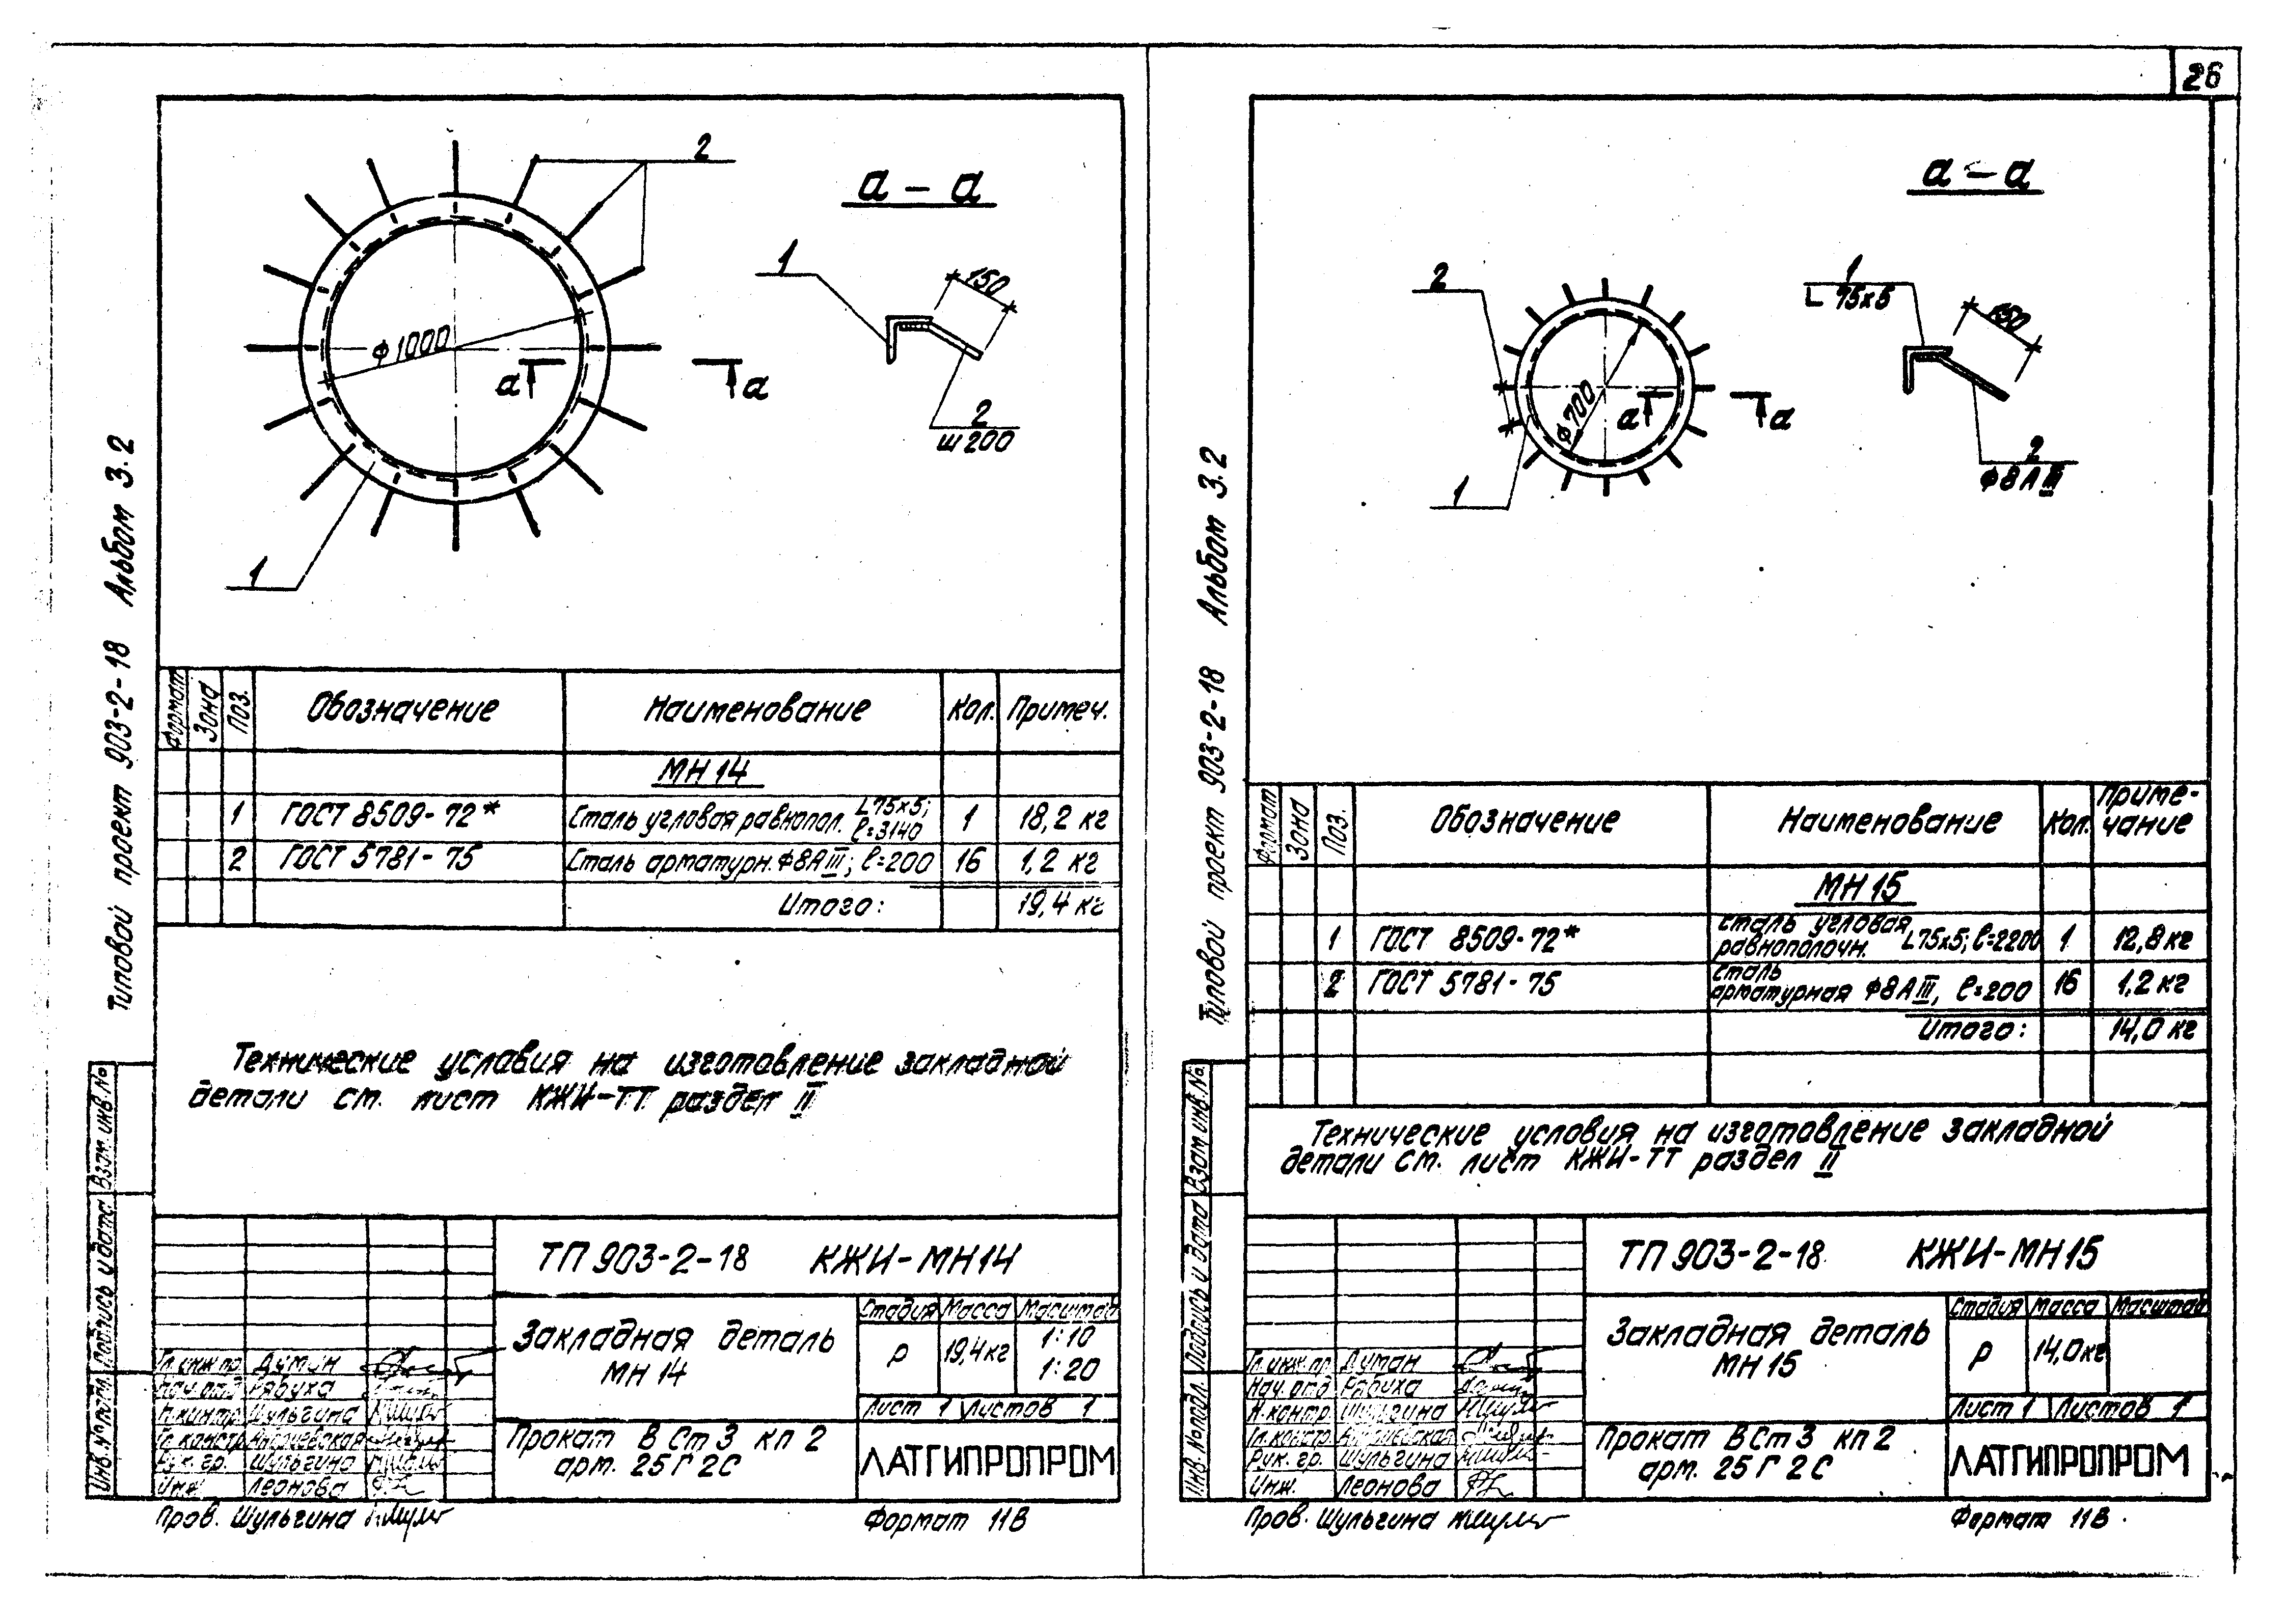 26
Типовой проект 903-2-18 Альбом 3.2
2
а - а
1
150
ф1000
а
а
2
ш200
1
Формат
Зона
Поз.
Обозначение
Наименование
Кол.
Примеч.
МН 14
1 ГОСТ 8509-72* Сталь угловая равнопол. L75х5; ℓ=3140 1 18,2 кг
2 ГОСТ 5781-75 Сталь арматурн. Ф8АIII; ℓ=200 16 1,2 кг
Итого: 19,4 кг
Технические условия на изготовление закладной
детали см. лист КЖИ-ТТ раздел II
Взам. инв. №
Подпись и дата
Инв. № подл.
ТП 903-2-18 КЖИ-МН14
Закладная деталь
МН 14
Стадия Масса Масштаб
Р 19,4кг 1:10
1:20
Лист 1 Листов 1
Гл. инж. пр. Думан
Нач. отд. Рябуха
Н. контр. Шульгина
Гл. констр.
Рук. гр. Шульгина
Инж. Леонова
Прокат В Ст 3 кп 2
арт. 25 Г 2С
ЛАТГИПРОПРОМ
Пров. Шульгина
Формат 11В
Типовой проект 903-2-18 Альбом 3.2
а - а
2
1
L 75х5
150
ф700
а
а
2
ф8АIII
1
Формат
Зона
Поз.
Обозначение
Наименование
Кол.
Приме-
чание
МН 15
1 ГОСТ 8509-72* Сталь угловая
равнополочн. L75х5; ℓ=2200 1 12,8кг
2 ГОСТ 5781-75 Сталь
арматурная Ф8АIII, ℓ=200 16 1,2 кг
Итого: 14,0 кг
Технические условия на изготовление закладной
детали см. лист КЖИ-ТТ раздел II
Взам. инв. №
Подпись и дата
Инв. № подл.
ТП 903-2-18 КЖИ-МН15
Закладная деталь
МН 15
Стадия Масса Масштаб
Р 14,0кг
Лист 1 Листов 1
Гл. инж. пр. Думан
Нач. отд. Рябуха
Н. контр. Шульгина
Гл. констр.
Рук. гр. Шульгина
Инж. Леонова
Прокат В Ст 3 кп 2
арт. 25 Г 2 С
ЛАТГИПРОПРОМ
Пров. Шульгина
Формат 11В